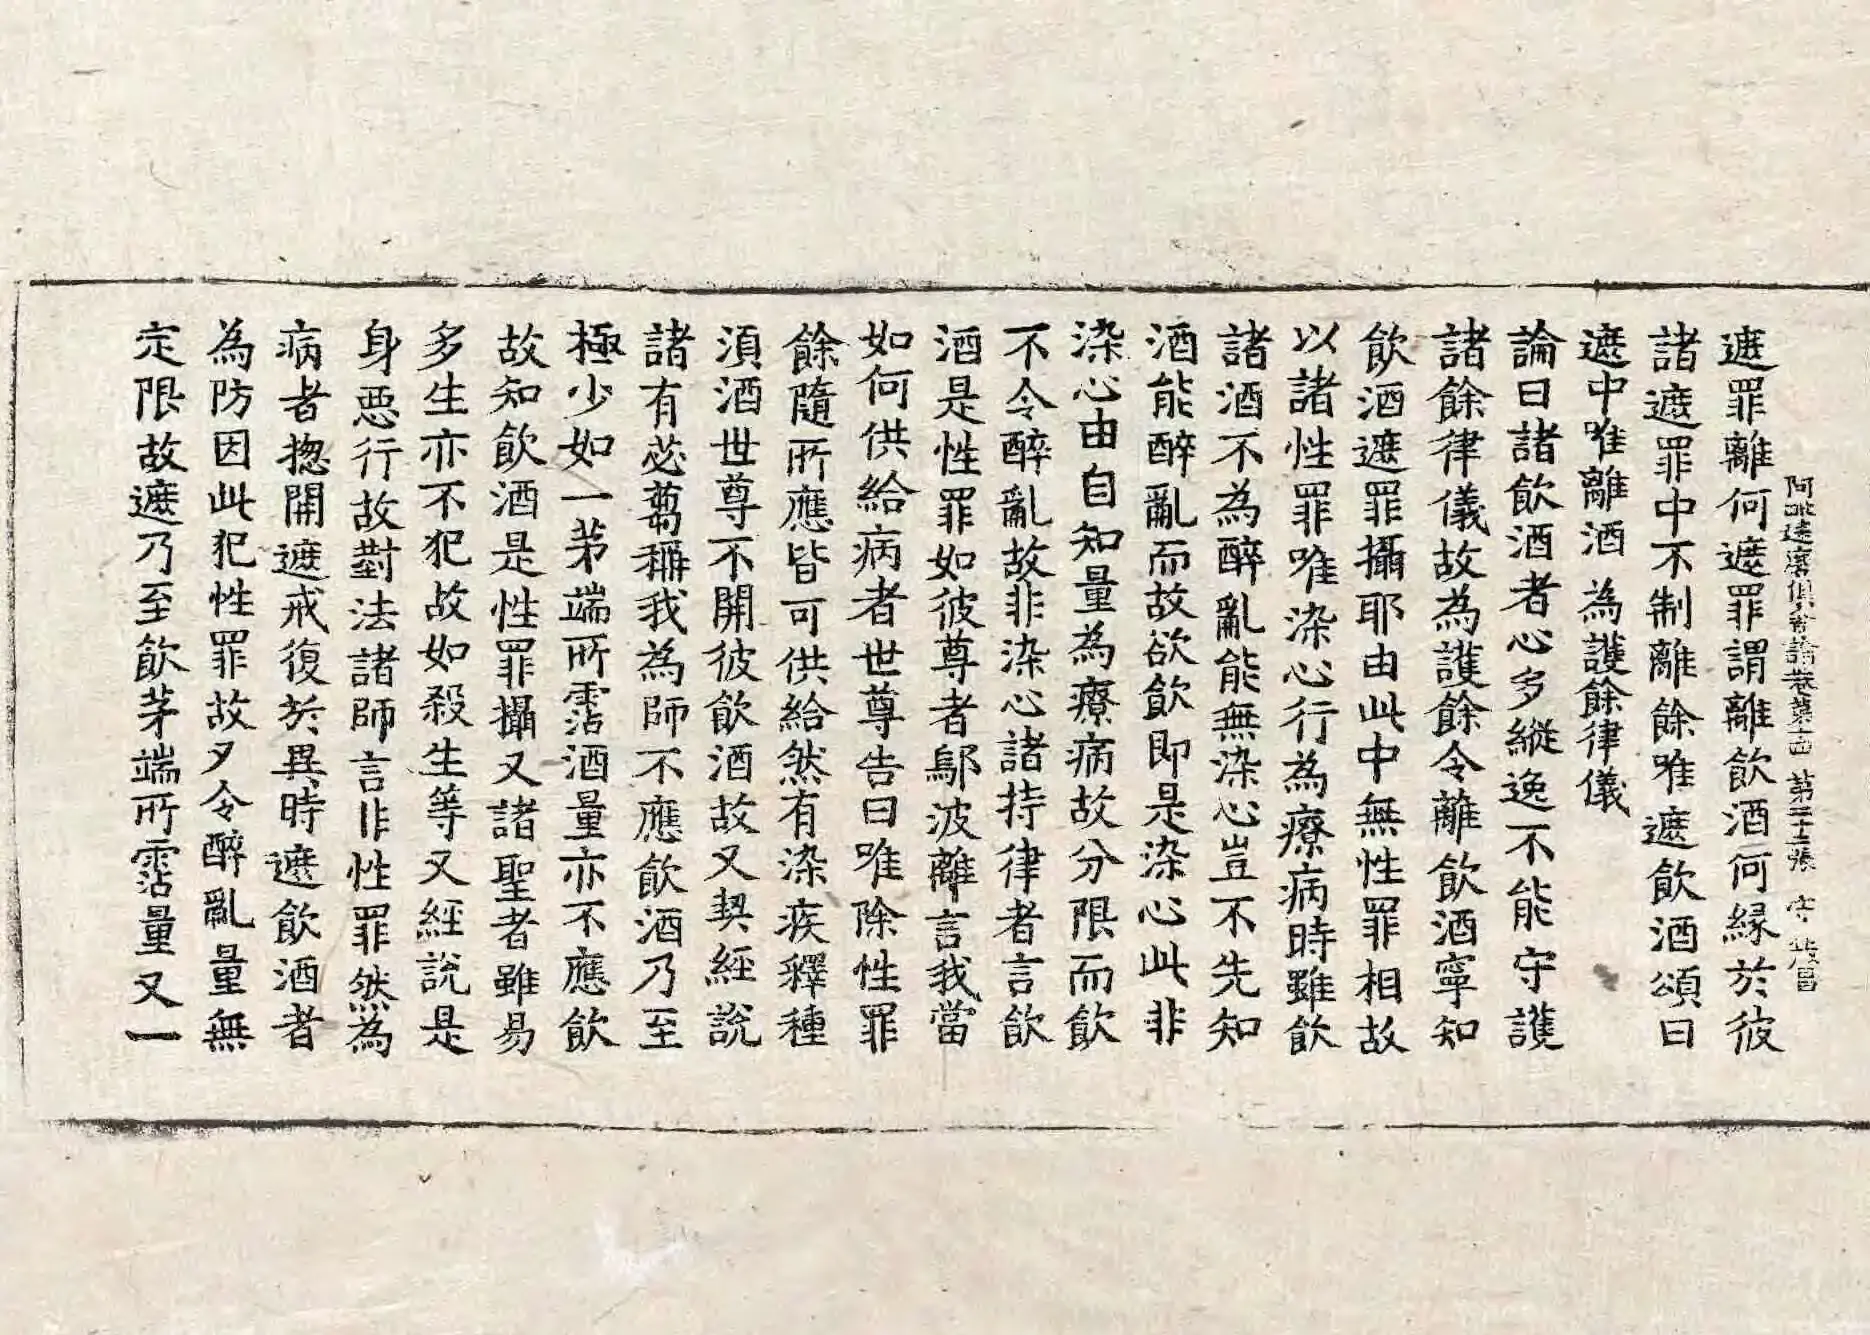 阿毗達磨俱舍論卷第十四 第二十二張 守
遮罪離何遮罪謂離飲酒何緣於彼
諸遮罪中不制離餘唯遮飲酒頌曰
遮中唯離酒 為護餘律儀
論曰諸飲酒者心多縱逸不能守護
諸餘律儀故為護餘令離飲酒寧知
飲酒遮罪攝耶由此中無性罪相故
以諸性罪唯染心行為療病時雖飲
諸酒不為醉亂能無染心豈不先知
酒能醉亂而故欲飲即是染心此非
染心由自知量為療病故分限而飲
不令醉亂故非染心諸持律者言飲
酒是性罪如彼尊者鄔波離言我當
如何供給病者世尊告曰唯除性罪
餘隨所應皆可供給然有染疾釋種
須酒世尊不開彼飲酒故又契經說
諸有苾蒭稱我為師不應飲酒乃至
極少如一茅端所霑酒量亦不應飲
故知飲酒是性罪攝又諸聖者雖易
多生亦不犯故如殺生等又經說是
身惡行故對法諸師言非性罪然為
病者揔開遮戒復於異時遮飲酒者
為防因此犯性罪故又令醉亂量無
定限故遮乃至飲茅端所霑量又一